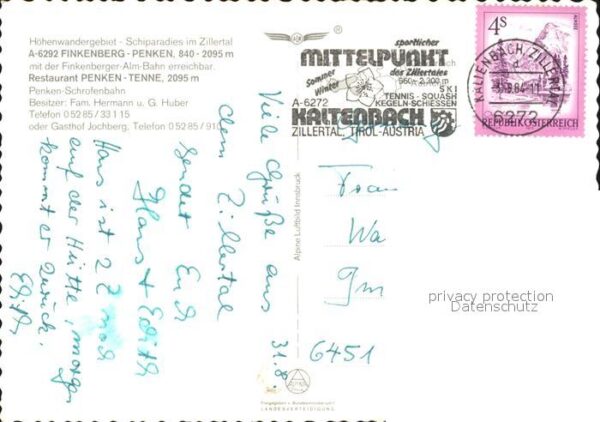 Höhenwandergebiet - Schiparadies im Zillertal
A-6292 FINKENBERG - PENKEN, 840 - 2095 m
mit der Finkenberger-Alm-Bahn erreichbar.
Restaurant PENKEN - TENNE, 2095 m
Penken-Schrofenbahn
Besitzer: Fam. Hermann u. G. Huber
Telefon 0 52 85 / 33 1 15
oder Gasthof Jochberg, Telefon 0 52 85 / 91
Viele Grüße aus
dem Zillertal
sendet Euch
Hans + Edith
Hans ist z Z noch
auf der Hütte, morgen
kommt er zurück.
Edith
31.8.
Alpine Luftbild Innsbruck
Freigegeben v. Bundesministerium f.
LANDESVERTEIDIGUNG
sportlicher
MITTELPUNKT
des Zillertales
Sommer
Winter
560 - 2.300 m
SKI
TENNIS - SQUASH
KEGELN-SCHIESSEN
A-6272
KALTENBACH
ZILLERTAL, TIROL-AUSTRIA
4S
KALTENBACH, ZILLERTAL
6272
REPUBLIK ÖSTERREICH
Frau
Wa
Gm
6451
privacy protection
Datenschutz